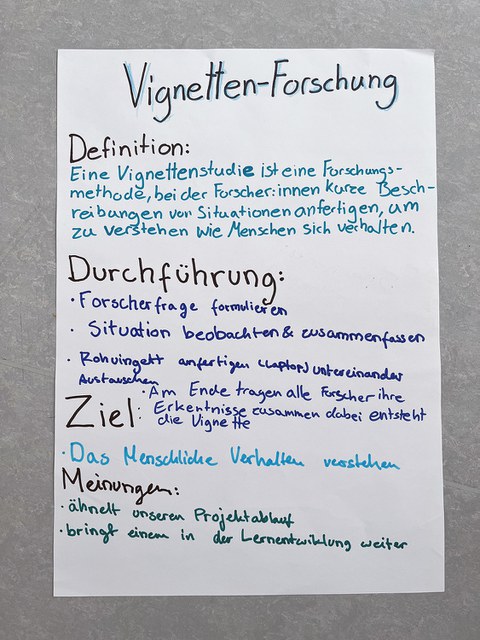 Vignetten-Forschung
Definition:
Eine Vignettenstudie ist eine Forschungs-
methode, bei der Forscher:innen kurze Besch-
reibungen von Situationen anfertigen, um
zu verstehen wie Menschen sich verhalten.
Durchführung:
· Forscherfrage formulieren
· Situation beobachten & zusammenfassen
· anfertigen (Laptop) untereinander
Austauschen
· Am Ende tragen alle Forscher ihre
Erkentnisse zusammen dabei entsteht
die Vignette
Ziel:
· Das Menschliche Verhalten verstehen
Meinungen:
· ähnelt unseren Projektablauf
· bringt einem in der Lernentwiklung weiter